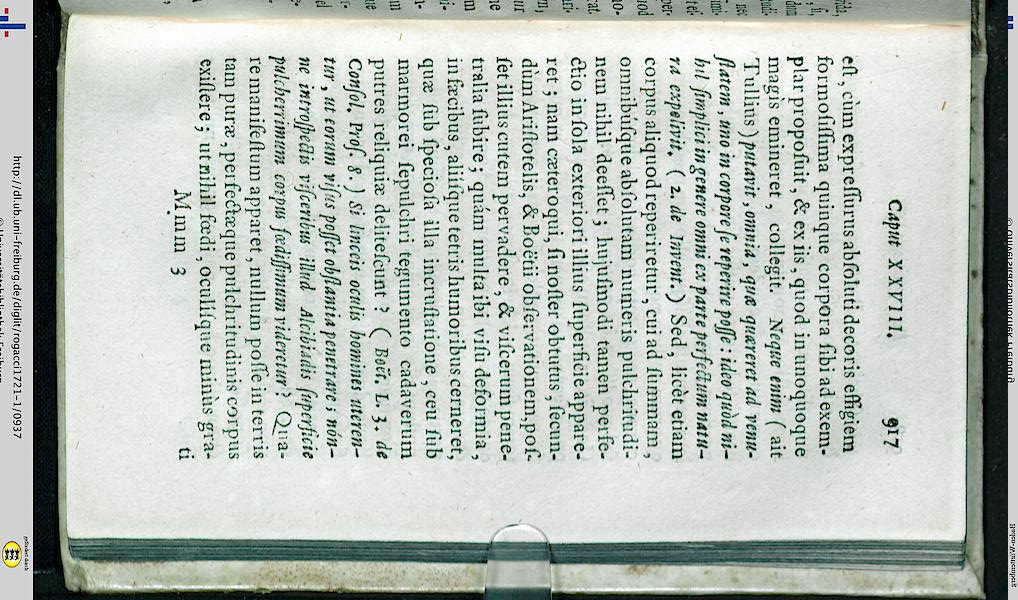 Caput XXVIII. 917
eſt, cùm expreſſurus abſoluti decoris effigiem
formoſiſſima quinque corpora ſibi ad exem-
plar propoſuit, & ex iis, quod in unoquoque
magis emineret, collegit. Neque enim (ait
Tullius) putavit, omnia, quæ quæreret ad venu-
ſtatem, uno in corpore ſe reperire poſſe: ideo quòd ni-
hil ſimplici in genere omni ex parte perfectum natu-
ra expolivit. (2. de Invent.) Sed, licèt etiam
corpus aliquod reperiretur, cui ad ſummam,
omnibúſque abſolutam numeris pulchritudi-
nem nihil deeſſet; hujuſmodi tamen perfe-
ctio in ſola exteriori illius ſuperficie appare-
ret; nam cæteroqui, ſi noſter obtutus, ſecun-
dùm Ariſtotelis, & Boëtii obſervationem, poſ-
ſet illius cutem pervadere, & viſcerum pene-
tralia ſubire; quàm multa ibi viſu deformia,
in fæcibus, aliiſque tetris humoribus cerneret,
quæ ſub ſpecioſa illa incruſtatione, ceu ſub
marmorei ſepulchri tegumento cadaverum
putres reliquiæ deliteſcunt? (Boët. L. 3. de
Conſol. Proſ. 8.) Si linceis oculis homines uteren-
tur, ut eorum viſus poſſet obſtantia penetrare; nón-
ne introſpectis viſceribus illud Alcibiadis ſuperficie
pulcherrimum corpus fœdiſſimum videretur? Qua-
re manifeſtum apparet, nullum poſſe in terris
tam puræ, perfectæque pulchritudinis corpus
exiſtere; ut nihil fœdi, oculiſque minùs gra-
Mmm 3 ti
http://dl.ub.uni-freiburg.de/diglit/rogacci1721-1/0937